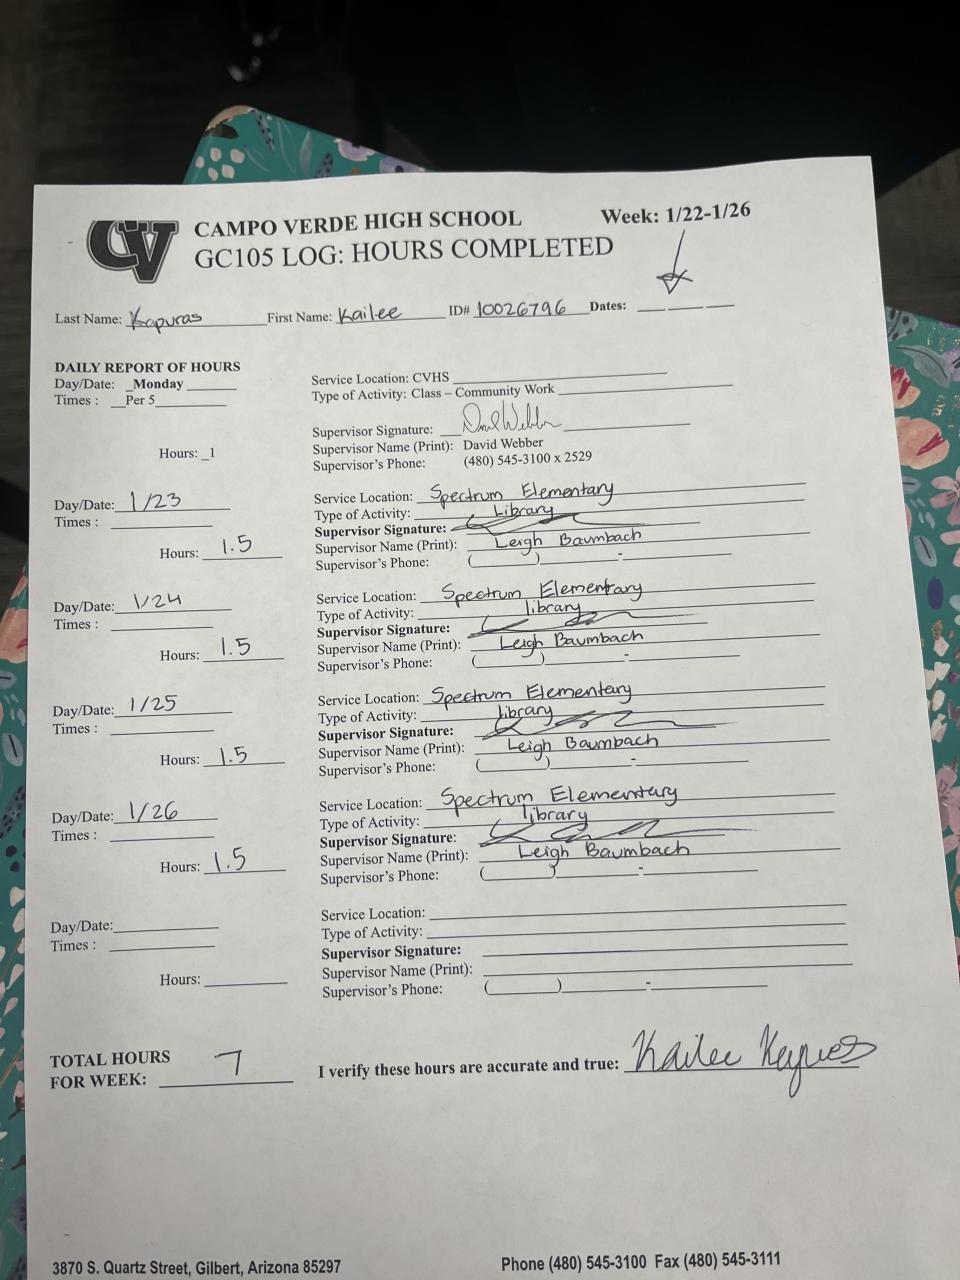 CV
CAMPO VERDE HIGH SCHOOL Week: 1/22-1/26
GC105 LOG: HOURS COMPLETED
Last Name: Kapuras First Name: Kailee ID# 10026796 Dates:
DAILY REPORT OF HOURS
Day/Date: Monday
Times : Per 5
Hours: 1
Service Location: CVHS
Type of Activity: Class – Community Work
Supervisor Signature: David Webber
Supervisor Name (Print): David Webber
Supervisor's Phone: (480) 545-3100 x 2529
Day/Date: 1/23
Times :
Hours: 1.5
Service Location: Spectrum Elementary
Type of Activity: Library
Supervisor Signature:
Supervisor Name (Print): Leigh Baumbach
Supervisor's Phone: ( ) -
Day/Date: 1/24
Times :
Hours: 1.5
Service Location: Spectrum Elementary
Type of Activity: library
Supervisor Signature:
Supervisor Name (Print): Leigh Baumbach
Supervisor's Phone: ( ) -
Day/Date: 1/25
Times :
Hours: 1.5
Service Location: Spectrum Elementary
Type of Activity: library
Supervisor Signature:
Supervisor Name (Print): Leigh Baumbach
Supervisor's Phone: ( ) -
Day/Date: 1/26
Times :
Hours: 1.5
Service Location: Spectrum Elementary
Type of Activity: library
Supervisor Signature:
Supervisor Name (Print): Leigh Baumbach
Supervisor's Phone: ( ) -
Day/Date:
Times :
Hours:
Service Location:
Type of Activity:
Supervisor Signature:
Supervisor Name (Print):
Supervisor's Phone: ( ) -
TOTAL HOURS
FOR WEEK: 7
I verify these hours are accurate and true: Kailee
3870 S. Quartz Street, Gilbert, Arizona 85297 Phone (480) 545-3100 Fax (480) 545-3111